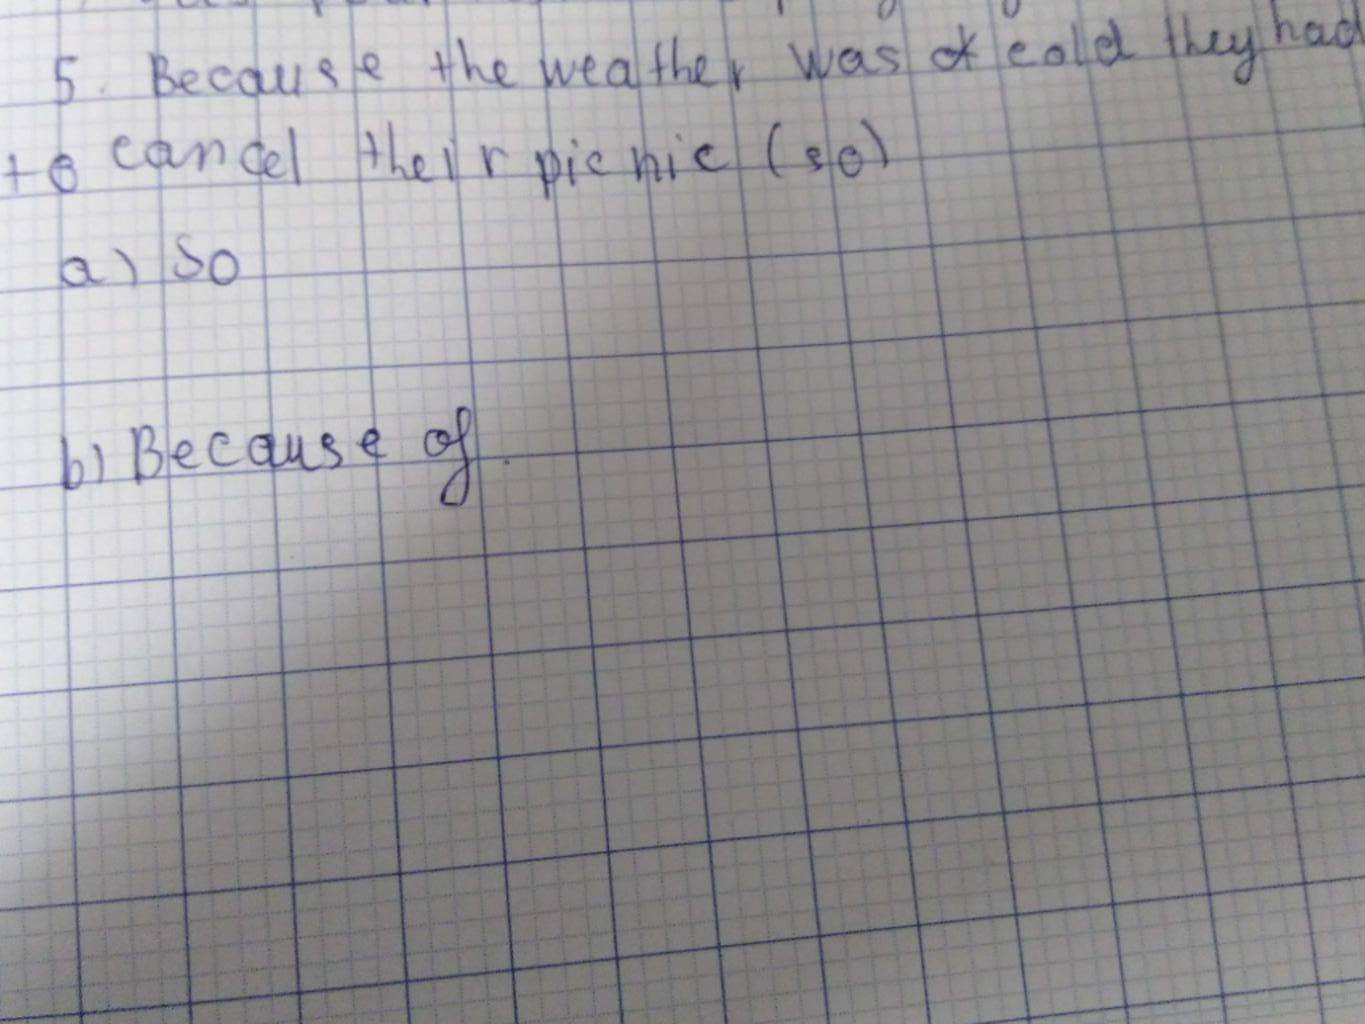 5. Because the weather was cold they had
to cancel their picnic (so)
a) So
b) Because of.